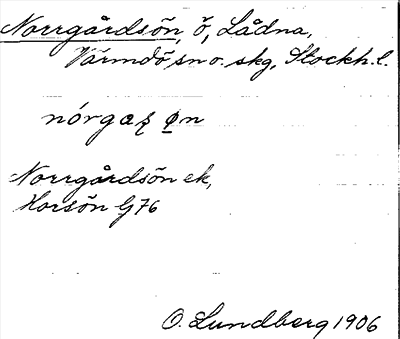 Norrgårdsön ö, Lådna,
Värmdö sn o. skg, Stockh. l.
nórgaʂ øn
Norrgårdsön ek,
Horsön G76
O. Lundberg 1906